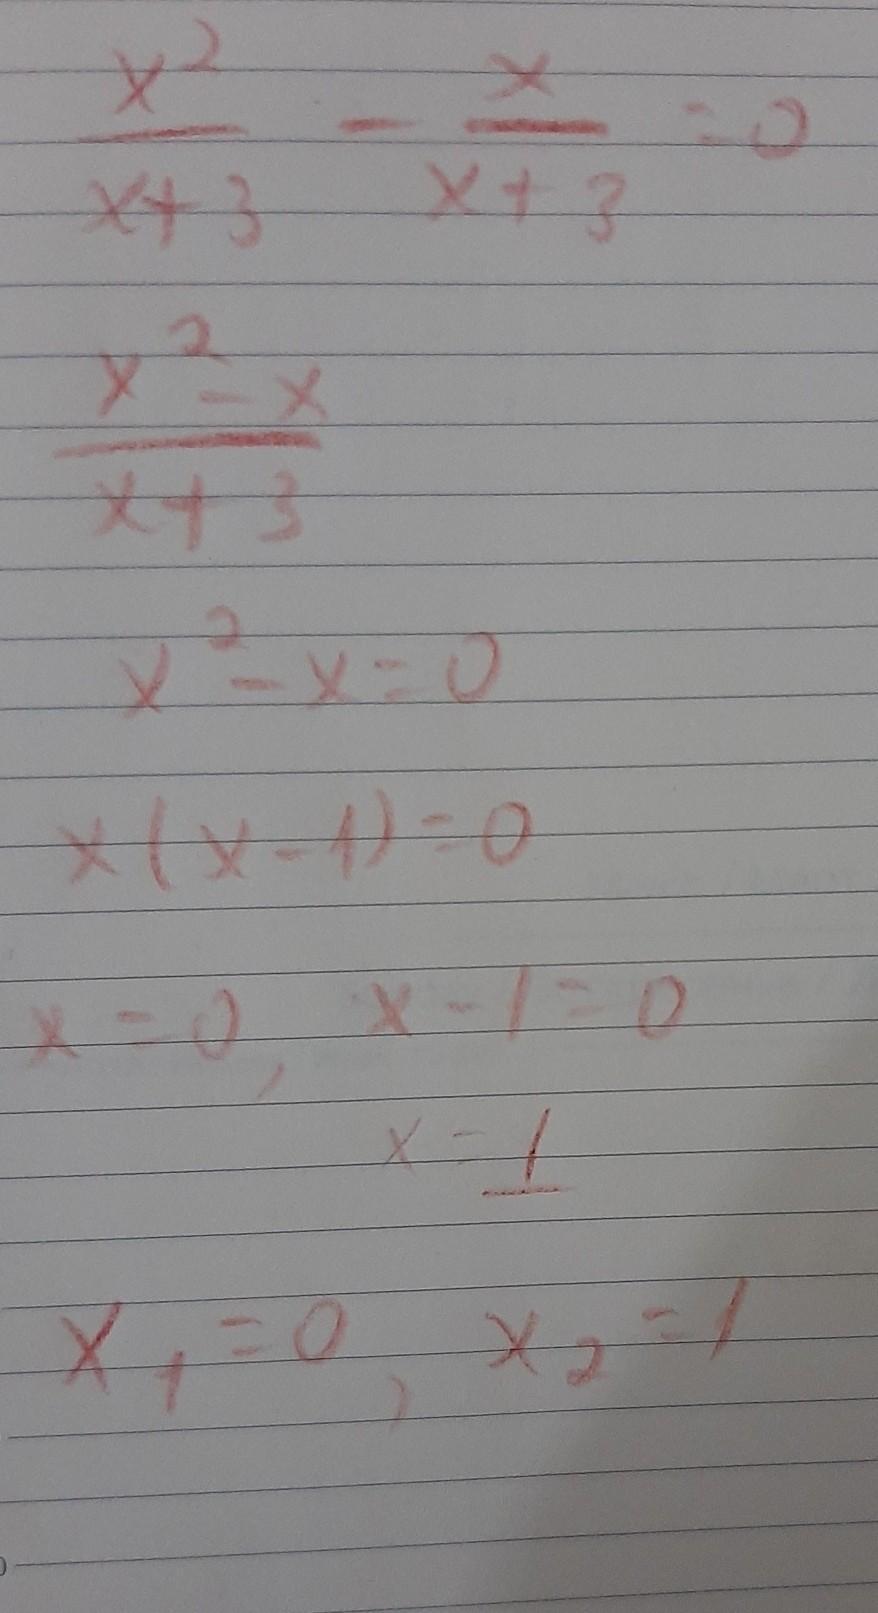 x²/(x+3) - x/(x+3) = 0
(x² - x)/(x+3)
x² - x = 0
x(x-1) = 0
x = 0, x - 1 = 0
x = 1
x₁ = 0, x₂ = 1